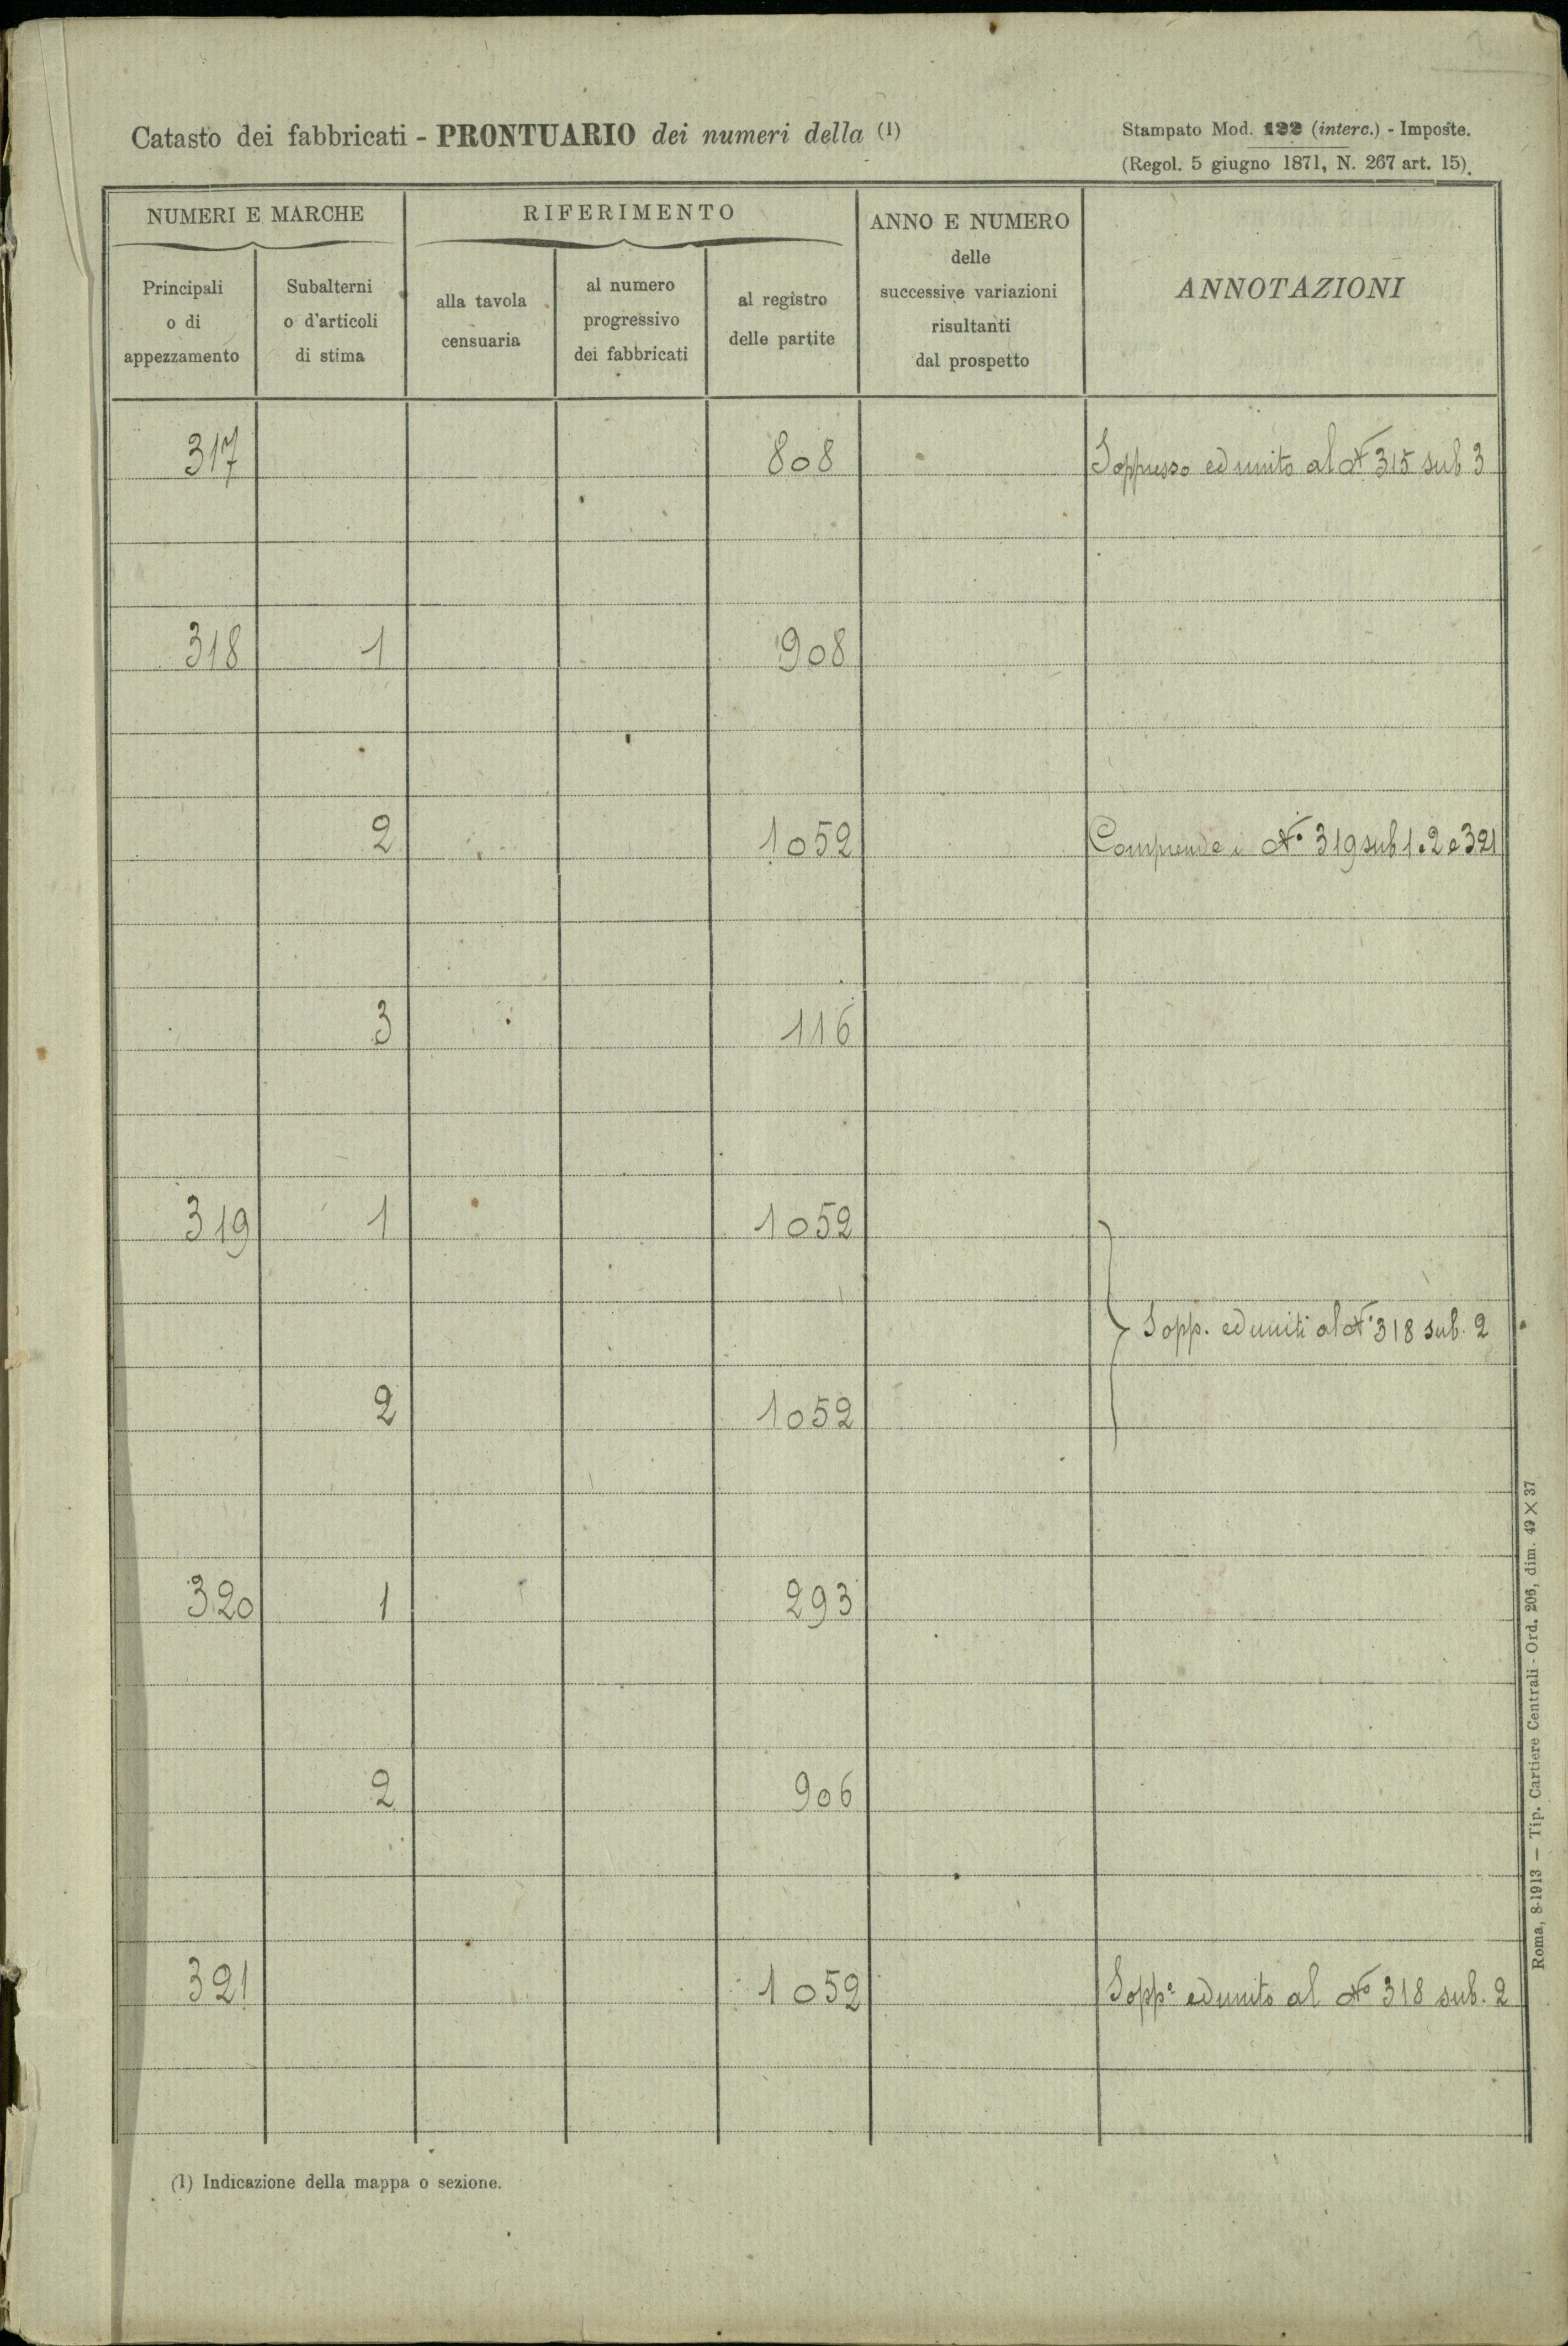 Catasto dei fabbricati - PRONTUARIO dei numeri della (1)
Stampato Mod. 122 (interc.) - Imposte.
(Regol. 5 giugno 1871, N. 267 art. 15).
NUMERI E MARCHE
RIFERIMENTO
ANNO E NUMERO
delle
successive variazioni
risultanti
dal prospetto
ANNOTAZIONI
Principali
o di
appezzamento
Subalterni
o d'articoli
di stima
alla tavola
censuaria
al numero
progressivo
dei fabbricati
al registro
delle partite
317 808 Soppresso ed unito al N° 315 sub 3
318 1 908
2 1052 Comprende i N° 319 sub 1 e 2 e 321
3 116
319 1 1052
Sopp. ed uniti al N° 318 sub. 2
2 1052
320 1 293
2 906
321 1052 Sopp° ed unito al N° 318 sub. 2
(1) Indicazione della mappa o sezione.
Roma, 8-1913 — Tip. Cartiere Centrali - Ord. 206, dim. 49 X 37